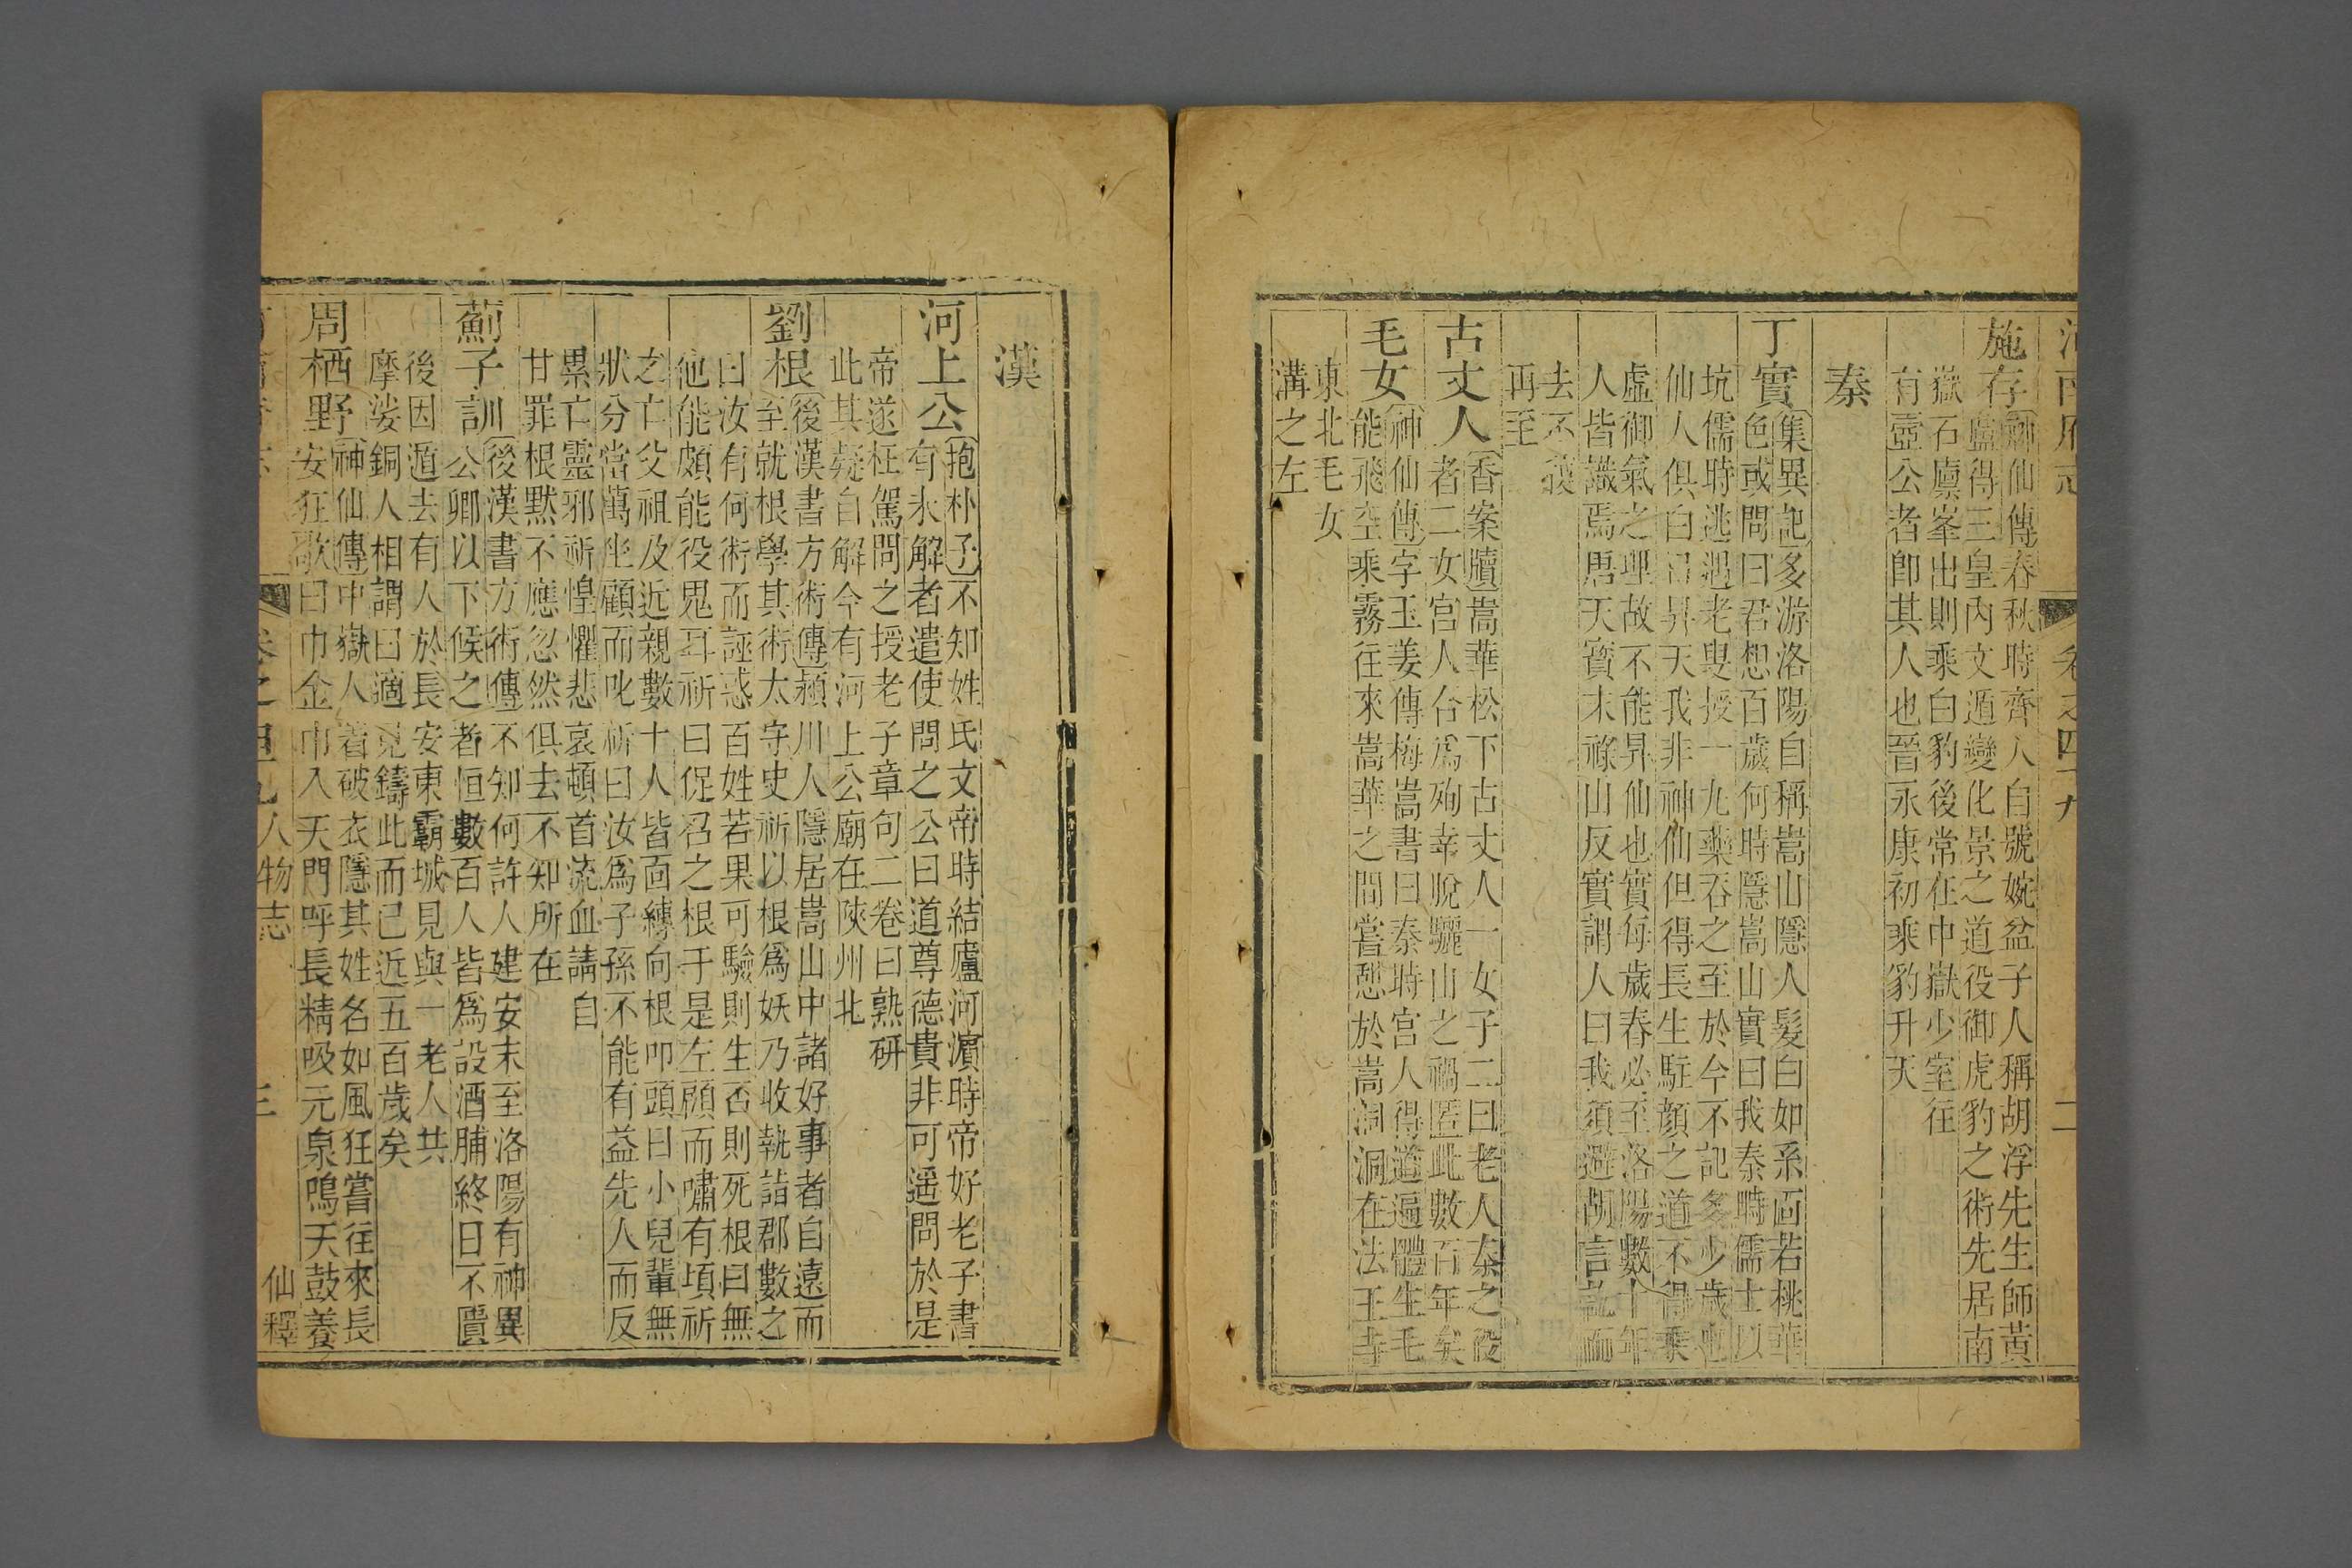 河南府志 卷之四十九 二
施存神仙傳春秋時齊人自號婉盆子人稱胡浮先生師黃
盧得三皇內文遁變化景之道役御虎豹之術先居南
嶽石廪峯出則乘白豹後常在中嶽少室往
有壺公者卽其人也晉永康初乘豹升天
秦
丁實集異記多游洛陽自稱嵩山隱人髮白如系面若桃華
色或問曰君想百歲何時隱嵩山實曰我秦時儒士以
坑儒時逃遇老叟授一九藥吞之至於今不記多少歲也
仙人俱白日昇天我非神仙但得長生駐顏之道不得乘
虛御氣之理故不能昇仙也實每歲春必至洛陽數十年
人皆識焉唐天寶末祿山反實謂人曰我須避胡言訖而
去不復
再至
古丈人香案牘嵩華松下古丈人一女子二曰老人秦之役
者二女宮人合為殉幸脫驪山之禍匿此數百年矣
毛女神仙傳字玉姜傳梅嵩書曰秦時宮人得道遍體生毛
能飛空乘霧往來嵩華之間嘗憇於嵩洞洞在法王寺
東北毛女
溝之左
漢
河上公抱朴子不知姓氏文帝時結廬河濵時帝好老子書
有未解者遣使問之公曰道尊德貴非可遥問於是
帝遂枉駕問之授老子章句二卷曰熟研
此其疑自解今有河上公廟在陝州北
劉根後漢書方術傳潁川人隱居嵩山中諸好事者自遠而
至就根學其術太守史祈以根爲妖乃收執詣郡數之
曰汝有何術而誣惑百姓若果可驗則生否則死根曰無
他能頗能役鬼耳祈曰促召之根于是左顧而嘯有頃祈
之亡父祖及近親數十人皆面縛向根叩頭曰小兒輩無
狀分當萬坐顧而叱祈曰汝爲子孫不能有益先人而反
累亡靈邪祈惶懼悲哀頓首流血請自
甘罪根默不應忽然俱去不知所在
薊子訓後漢書方術傳不知何許人建安末至洛陽有神異
公卿以下候之者恒數百人皆爲設酒脯終日不匱
後因遁去有人於長安東霸城見與一老人共
摩娑銅人相謂曰適見鑄此而已近五百歲矣
周栖野神仙傳中嶽人着破衣隱其姓名如風狂嘗往來長
安狂歌曰巾金巾入天門呼長精吸元泉鳴天鼓養
卷之四九 人物志 三 仙釋